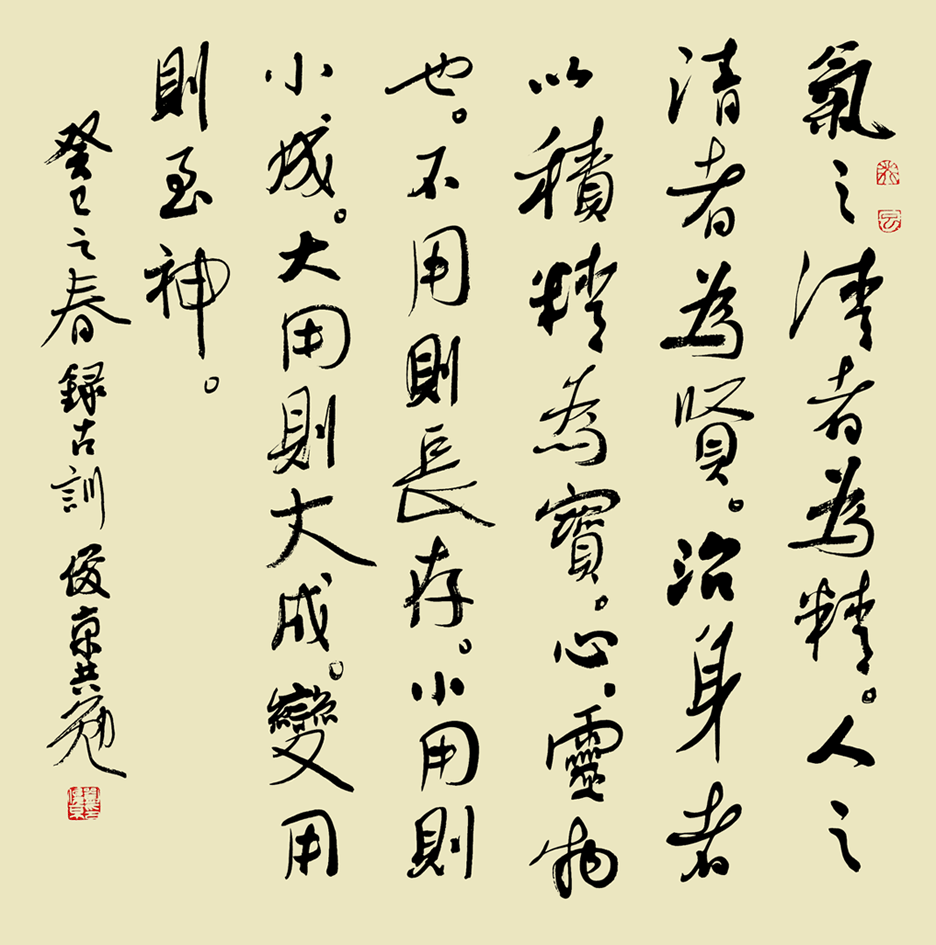 氣之清者為精。人之
清者為賢。治身者
以積精為寶。心、靈物
也。不用則長存。小用則
小成。大用則大成。變用
則至神。
癸巳之春 録古訓 俊京共勉